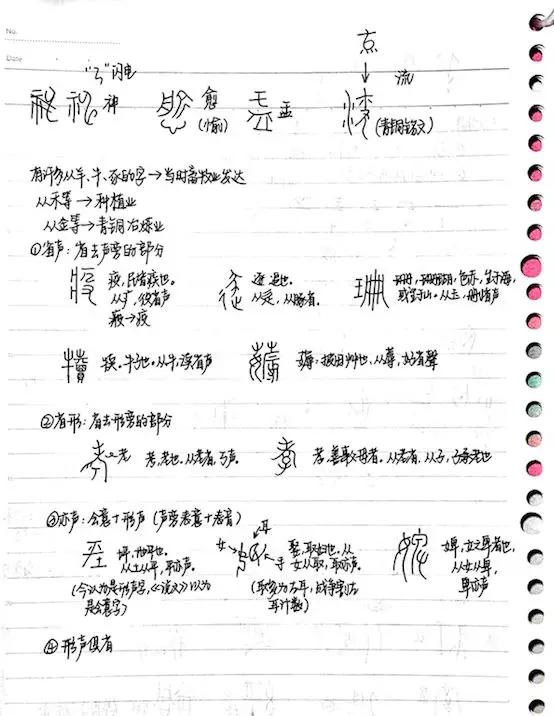 No.
Date
"ㄋ"闪电
神
愈
(愉)
盂
㐬
流
(青铜铭文)
有许多从羊、牛、豕的字→当时畜牧业发达
从禾等→种植业
从金等→青铜冶炼业
①省声：省去声旁的部分
疫，民皆疾也。
从疒，役省声
疲→疫
逐 追也。
从辵，从豚省。
珊瑚，色赤，生于海，
或生于山。从玉，册省声
犊。牛子也。从牛，渎省声
薅：拔田艸也，从蓐，好省聲
②省形：省去形旁的部分
老
考，老也。从老省，丂声。
孝，善事父母者。从老省，从子，子承老也
③亦声：会意+形声（声旁表意+表音）
坪，地平也。
从土从平，平亦声。
(今认为是形声字，《说文》以为
是会意字)
女
耳
手
娶，取妇也，从
女从取，取亦声。
(取多为左耳，战争割左
耳计数)
婢，女之卑者也，
从女从卑，
卑亦声
④形声俱省